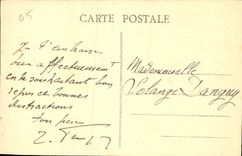 05
CARTE POSTALE
Je t'embrasse
bien affectueusement
en te souhaitant bon
repos et bonnes
distractions
ton père
Mademoiselle
Solange Danguy